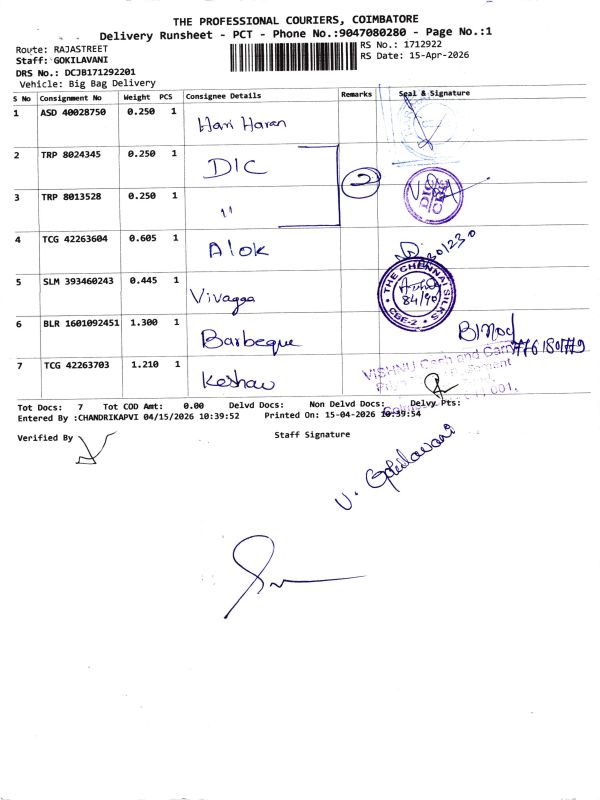 THE PROFESSIONAL COURIERS, COIMBATORE
Delivery Runsheet - PCT - Phone No.:9047080280 - Page No.:1
Route: RAJASTREET
RS No.: 1712922
Staff: GOKILAVANI
RS Date: 15-Apr-2026
DRS No.: DCJB171292201
Vehicle: Big Bag Delivery
S No Consignment No Weight PCS Consignee Details Remarks Seal & Signature
1 ASD 40028750 0.250 1 Hari Haran
2 TRP 8024345 0.250 1 DIC 2
3 TRP 8013528 0.250 1 "
4 TCG 42263604 0.605 1 Alok
5 SLM 393460243 0.445 1 Vivagaa
THE CHENNAI SILKS
CBE-2
6 BLR 1601092451 1.300 1 Barbeque
Binod
7 TCG 42263703 1.210 1 Keshav
VISHNU Cash and Carry
Tot Docs: 7 Tot COD Amt: 0.00 Delvd Docs: Non Delvd Docs: Delvy Pts:
Entered By :CHANDRIKAPVI 04/15/2026 10:39:52 Printed On: 15-04-2026 10:39:54
Verified By
Staff Signature
V. Gokilavani